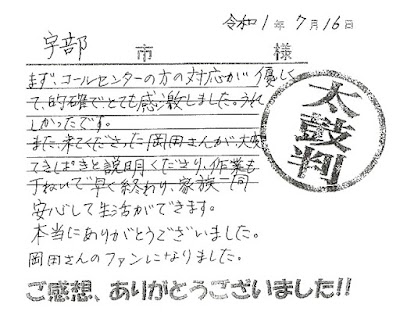 令和1年7月16日
宇部 市 様
まず、コールセンターの方の対応が優しく
て、的確で、とても感激しました。うれ
しかったです。
また、来てくださった岡田さんが、大変
てきぱきと説明くださり、作業も
丁ねいで早く終わり、家族一同
安心して生活ができます。
本当にありがとうございました。
岡田さんのファンになりました。
太鼓判
ご感想、ありがとうございました!!